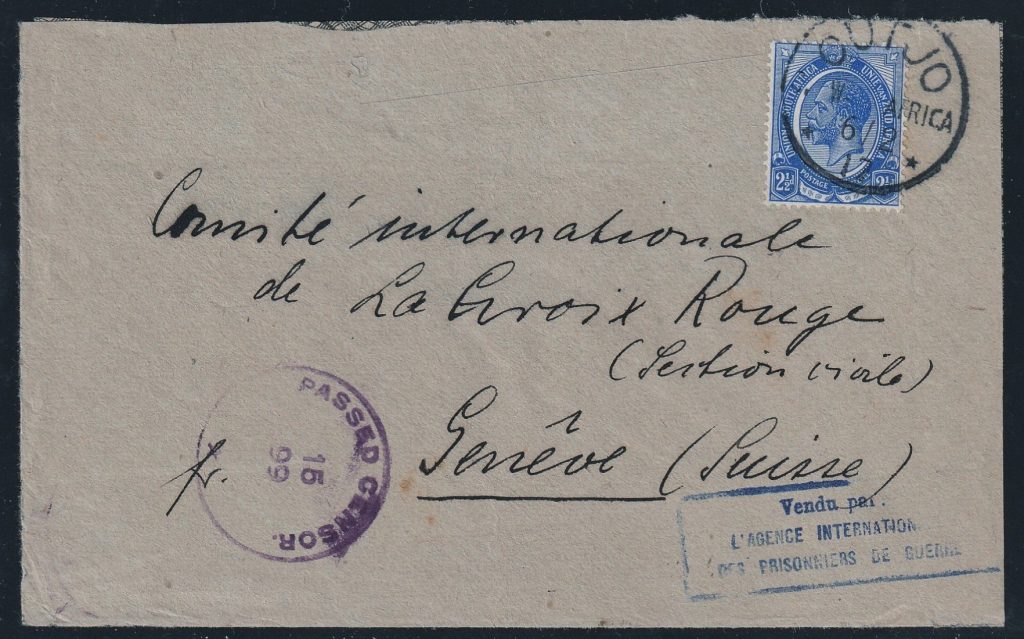 OUTJO
W. AFRICA
6/
17
UNION OF SOUTH AFRICA
UNIE VAN ZUID AFRIKA
2½d POSTAGE 2½d
Comité internationale
de La Croix Rouge
(Section civile)
fr. Genêve (Suisse)
PASSED CENSOR.
15
99
Vendu par:
L'AGENCE INTERNATION
DES PRISONNIERS DE GUERRE